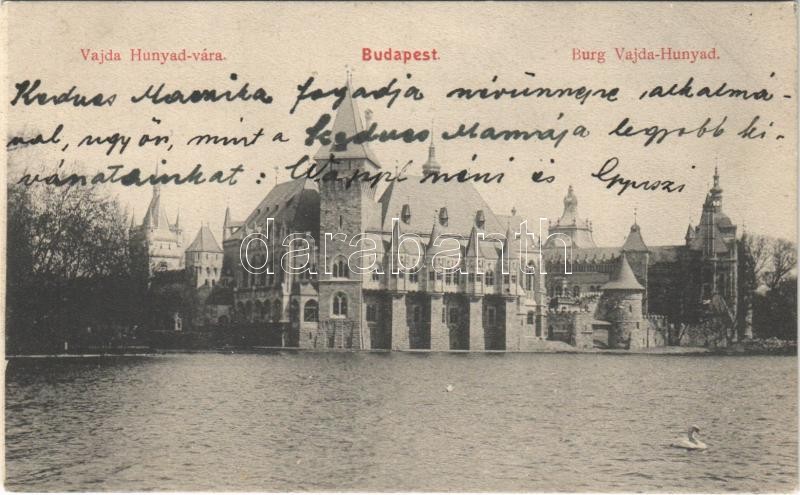 Vajda Hunyad-vára. Budapest. Burg Vajda-Hunyad.
Kedves Maczika fogadja névünnepe alkalmá-
val, ugy ön, mint a kedves Mamája legjobb ki-
vánatainkat: néni és
darabanth.com